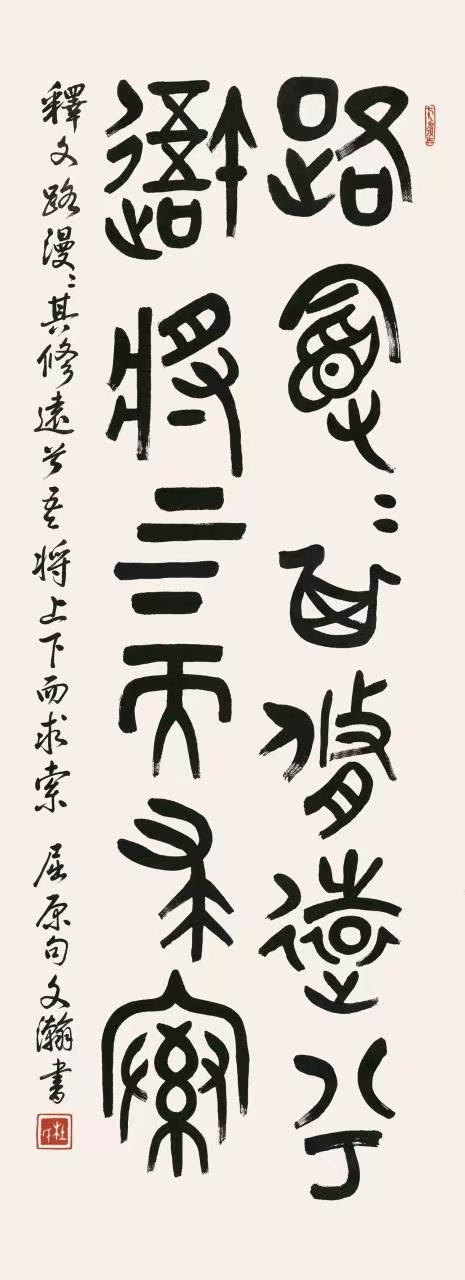 路曼〻其修遠兮
䢩將上下而求索
釋文路漫〻其修遠兮吾將上下而求索 屈原句文瀚書